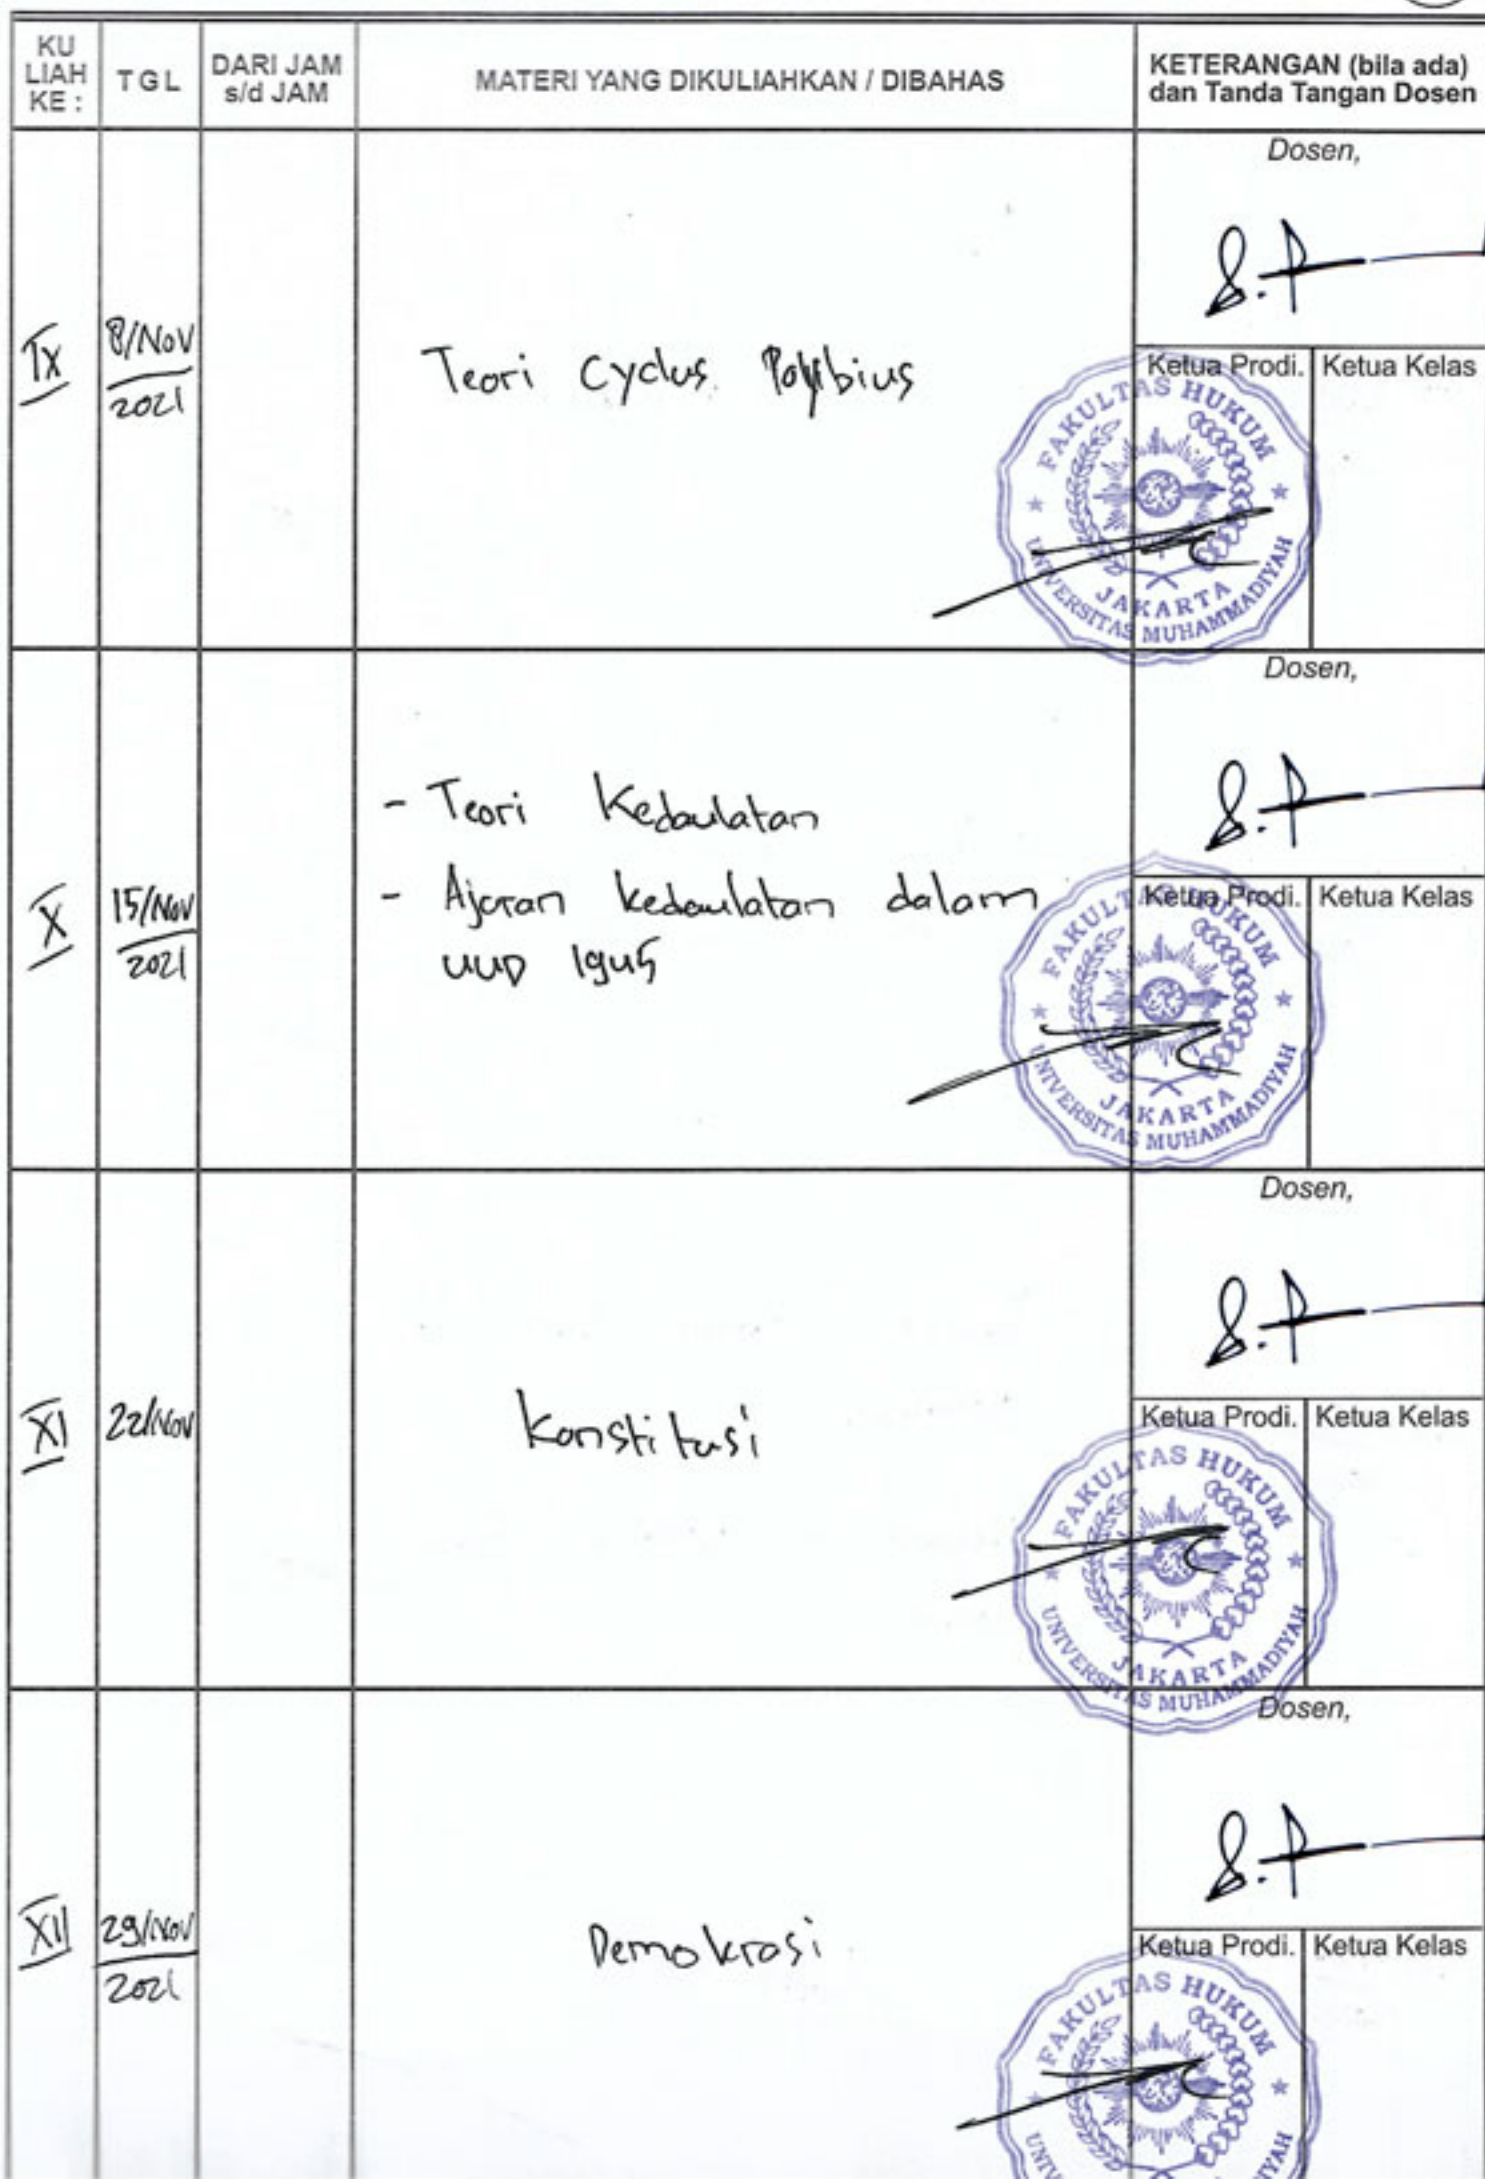 KU
LIAH
KE :
TGL
DARI JAM
s/d JAM
MATERI YANG DIKULIAHKAN / DIBAHAS
KETERANGAN (bila ada)
dan Tanda Tangan Dosen
IX
8/Nov
2021
Teori Cyclus Polybius
Dosen,
Ketua Prodi.
Ketua Kelas
FAKULTAS HUKUM
JAKARTA
UNIVERSITAS MUHAMMADIYAH
X
15/Nov
2021
- Teori Kedaulatan
- Ajaran kedaulatan dalam
UUD 1945
Dosen,
Ketua Prodi.
Ketua Kelas
FAKULTAS HUKUM
JAKARTA
UNIVERSITAS MUHAMMADIYAH
XI
22/Nov
Konstitusi
Dosen,
Ketua Prodi.
Ketua Kelas
FAKULTAS HUKUM
JAKARTA
UNIVERSITAS MUHAMMADIYAH
XII
29/Nov
2021
Demokrasi
Dosen,
Ketua Prodi.
Ketua Kelas
FAKULTAS HUKUM